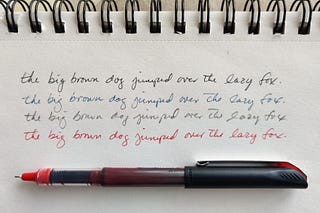 the big brown dog jumped over the lazy fox.
the big brown dog jumped over the lazy fox.
the big brown dog jumped over the lazy fox.
the big brown dog jumped over the lazy fox.